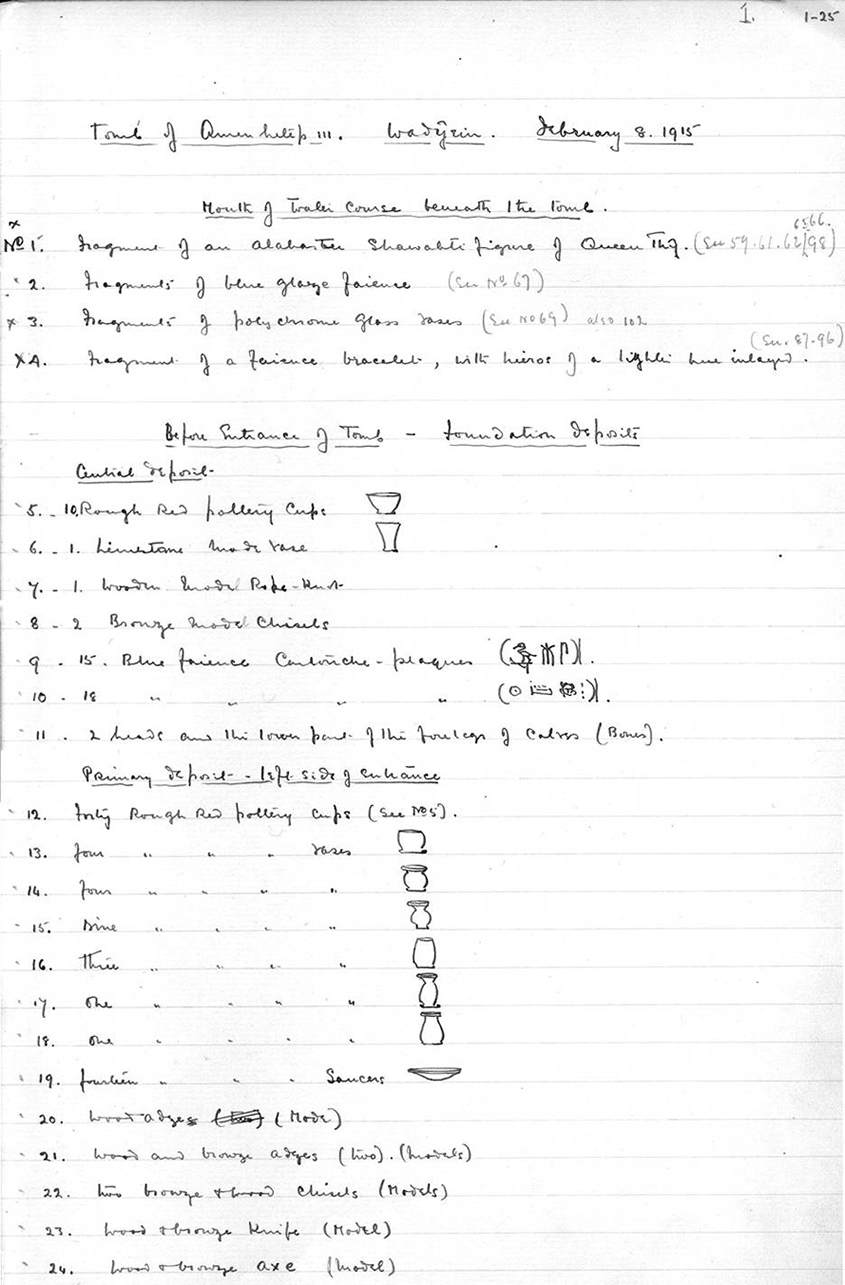 1. 1-25
Tomb of Amenhetep III. Wadyein. February 8. 1915
Mouth of Water Course beneath the tomb.
x
65 66.
No 1. Fragment of an alabaster Shawabti figure of Queen Thiy. (See 59.61.62/98)
2. Fragments of blue glaze faience (See No 67)
x 3. Fragments of polychrome glass vases (See No 69) also 102
(See. 87-96)
x 4. Fragment of a faience bracelet, with hieros of a lighter hue inlayed.
Before Entrance of Tomb - Foundation Deposits
Central deposit-
5. - 10. Rough Red pottery Cups
6. - 1. Limestone Model Vase
7. - 1. Wooden Model Rope-Knot
8 - 2 Bronze Model Chisels
9 - 15. Blue faience Cartouche-plaques
10 - 18 " " " "
11. 2 heads and the lower part of the forelegs of Calves (Bones).
Primary deposit - left side of entrance
12. forty Rough Red pottery Cups (See No 5).
13. four " " " Vases
14. four " " " "
15. Nine " " " "
16. Three " " " "
17. One " " " "
18. one " " " "
19. fourteen " " " Saucers
20. Wood adzes (Model)
21. Wood and bronze adzes (two). (Models)
22. two bronze + wood Chisels (Models)
23. wood + bronze Knife (Model)
24. Wood + bronze axe (Model)